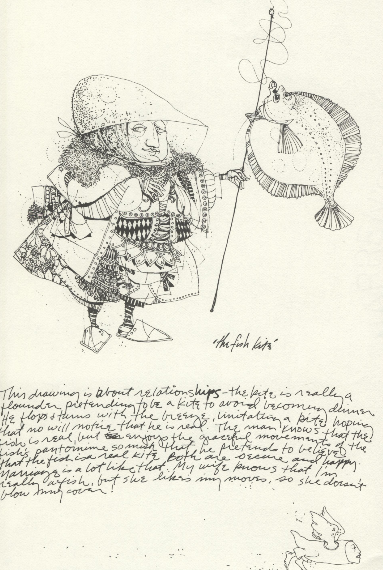 "the fish kite"
This drawing is about relationships - the kite is really a
flounder pretending to be a kite to avoid becoming dinner
He flops & turns with the breeze, imitating a kite hoping
that no will notice that he is real. The man knows that the
fish is real, but enjoys the graceful movements of the
fish's pantomime so much that he pretends to believe
that the fish is a real kite. Both are secure and happy.
Marriage is a lot like that. My wife knows that I'm
really a fish, but she likes my moves, so she doesn't
blow my cover!